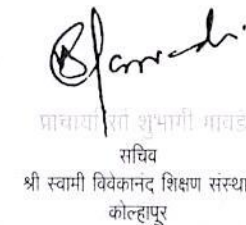 प्राचार्या सौ शुभांगी गावडे
सचिव
श्री स्वामी विवेकानंद शिक्षण संस्था
कोल्हापूर